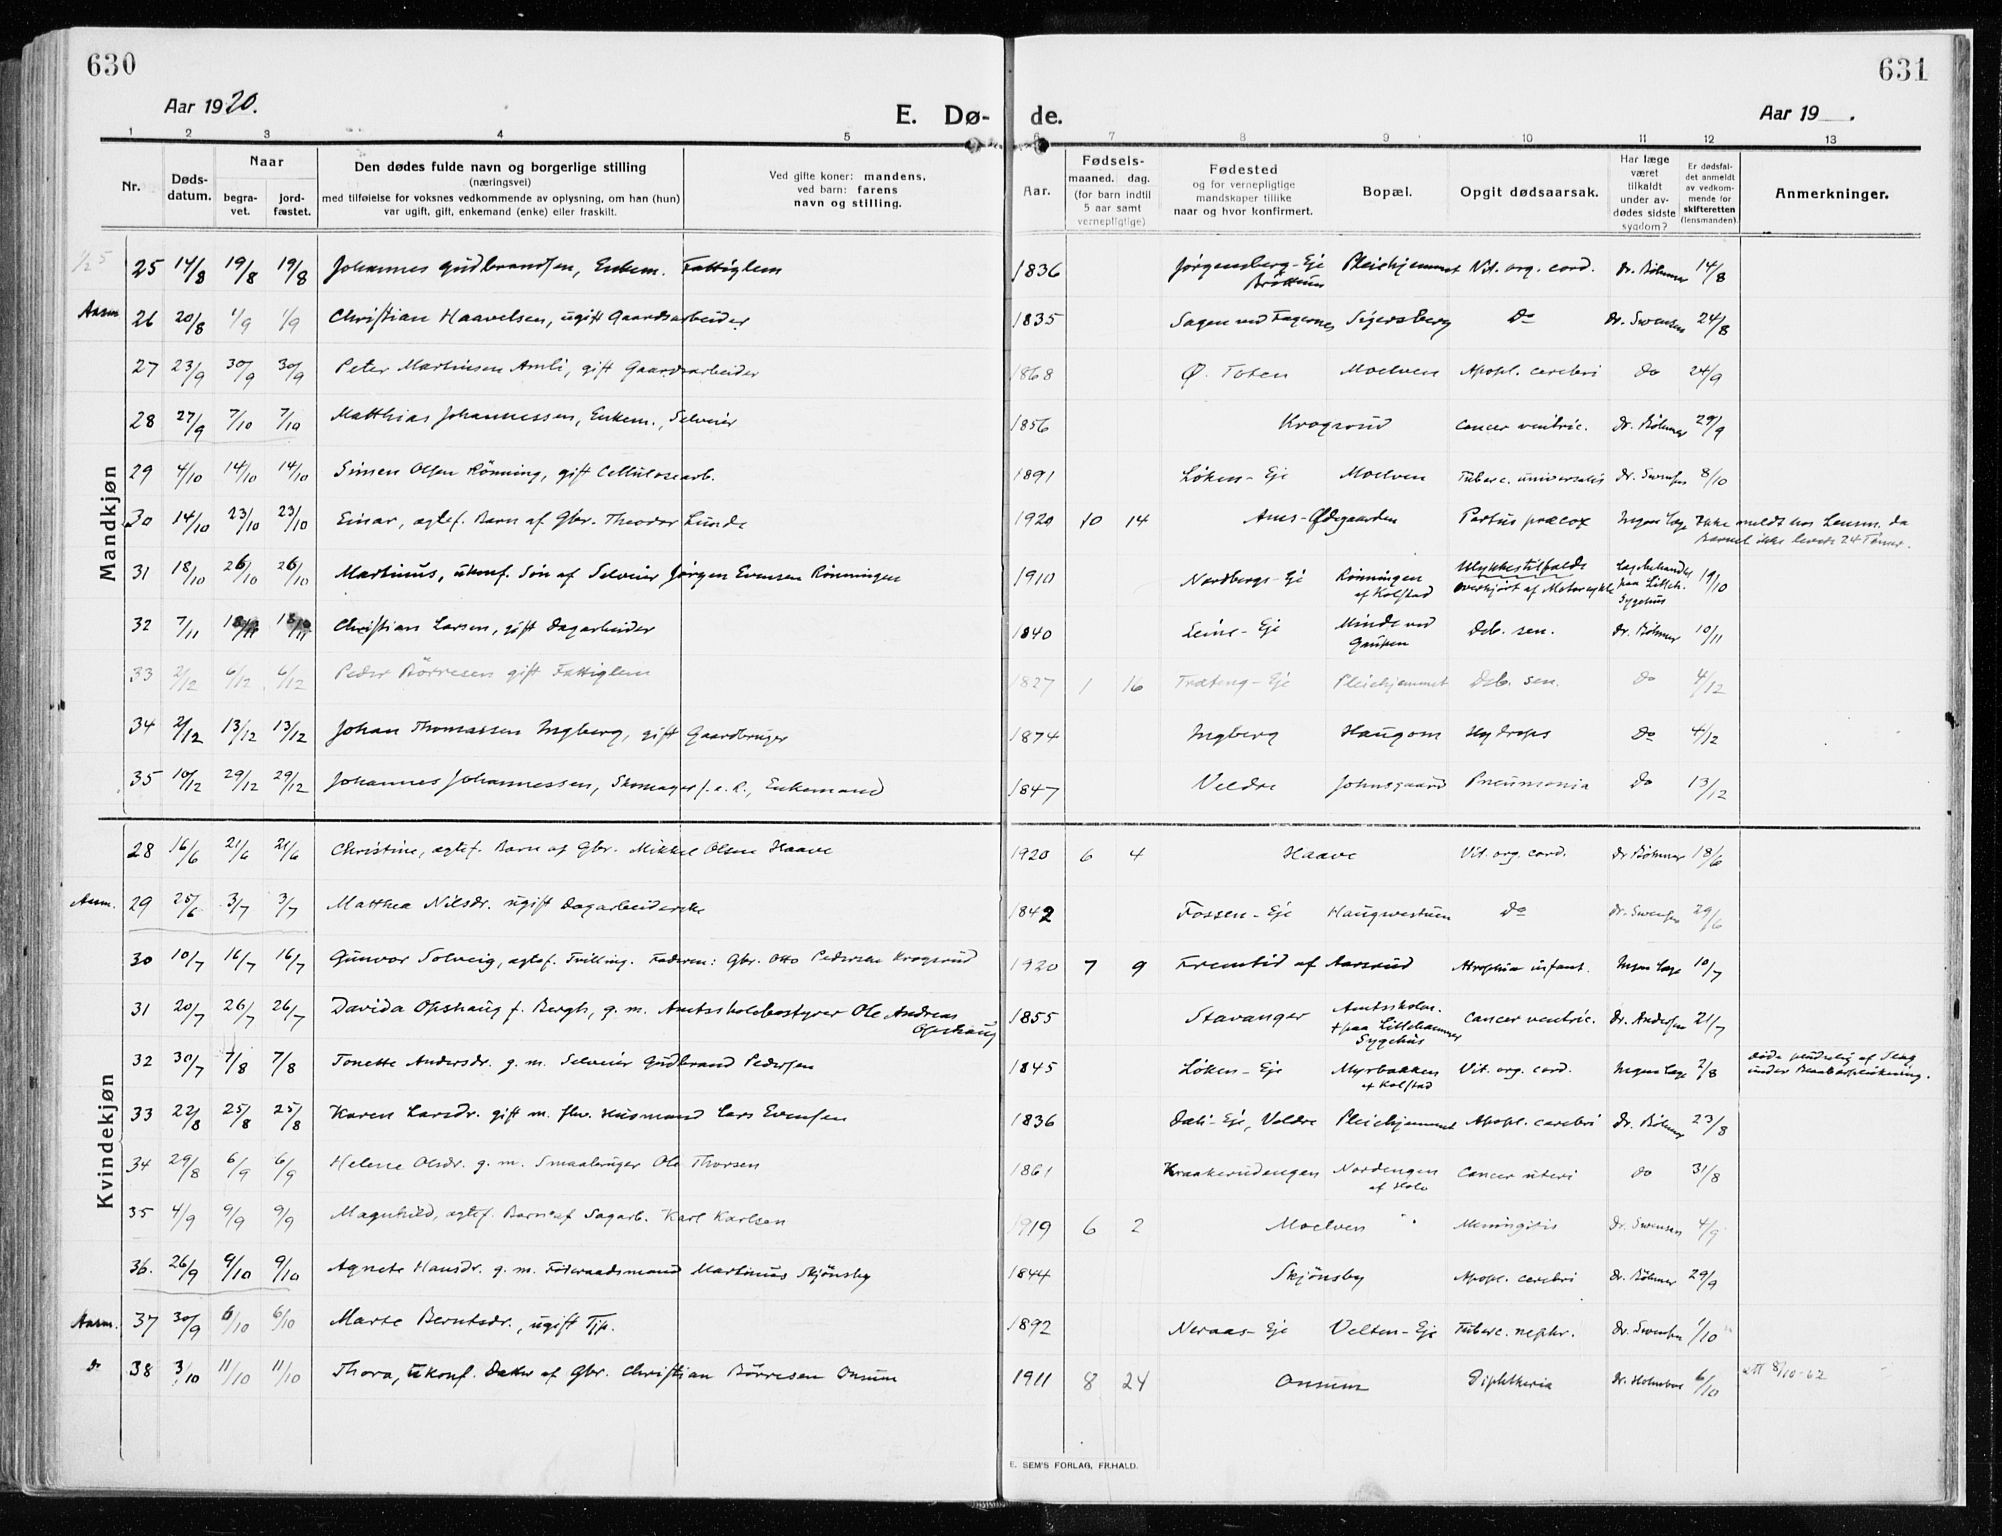 630
631
Aar 1920.
E. Dø- de.
Aar 19 .
1 2 3 4 5 6 7 8 9 10 11 12 13
Nr.
Døds-datum.
Naar
begra-vet.
jord-fæstet.
Den dødes fulde navn og borgerlige stilling
(næringsvei)
med tilføielse for voksnes vedkommende av oplysning, om han (hun)
var ugift, gift, enkemand (enke) eller fraskilt.
Ved gifte koner: mandens,
ved barn: farens
navn og stilling.
Aar.
Fødsels-
maaned. dag.
(for barn indtil
5 aar samt
vernepligtige)
Fødested
og for vernepligtige
mandskaper tillike
naar og hvor konfirmert.
Bopæl.
Opgit dødsaarsak.
Har læge
været
tilkaldt
under av-
dødes sidste
sygdom?
Er dødsfal-
det anmeldt
av vedkom-
mende for
skifteretten
(lensmanden).
Anmerkninger.
Mandkjøn
25 14/8 19/8 19/8 Johannes Gudbrandsen, Enkem. Fattiglem 1836 Jørgensberg-Eje Pleiehjemmet Vit. org. cord. Dr. Bøhmer 14/8
Brøttum
Aasm 26 20/8 1/9 1/9 Christian Haavelsen, ugift Gaardsarbeider 1835 Sagen ved Fagernes Sigersberg Do Dr. Swensen 24/8
27 23/9 30/9 30/9 Peter Martinsen Amli, gift Gaardsarbeider 1868 Ø. Toten Moelven Apopl. cerebri Do 24/9
28 27/9 7/10 7/10 Matthias Johannessen, Enkem., Selveier 1856 Krogsrud Cancer ventric. Dr. Bøhmer 29/9
29 4/10 14/10 14/10 Simen Olsen Rønning, gift Cellulosearb. 1891 Løken-Eje Moelven Tuberc. universalis Dr. Swensen 8/10
30 14/10 23/10 23/10 Einar, ægtef. Barn af Gbr. Theodor Lunde 1920 10 14 Ams-Ødegaarden Partus præcox Ingen Læge Ikke meldt hos Lensm. da
Barnet ikke levede 24 Timer.
31 18/10 26/10 26/10 Martinus, ukonf. Søn af Selveier Jørgen Evensen Rønningen 1910 Nordbergs-Eje Rønningen Ulykkestilfælde 19/10
af Kolstad overkjørt af Motorcykle paa Litleh.
Sygehus
32 7/11 18/11 18/11 Christian Larsen, gift Dagarbeider 1840 Leine-Eje Minde ved Deb. sen. Dr. Bøhmer 10/11
33 2/12 6/12 6/12 Peder Børresen gift Fattiglem 1827 1 16 Træteng-Eje Pleiehjemmet Deb. sen. Do 4/12
34 2/12 13/12 13/12 Johan Thomassen Ingberg, gift Gaardbruger 1874 Ingberg Haugom Hydrops Do 4/12
35 10/12 29/12 29/12 Johannes Johannessen, Skomager f.e.R., Enkemand 1847 Veldre Johnsgaard Pneumonia Do 13/12
Kvindekjøn
28 16/6 21/6 21/6 Christine, ægtef. Barn af Gbr. Mikkel Olsen Haave 1920 6 4 Haave Vit. org. cord. Dr Bøhmer 18/6
Aasm. 29 25/6 3/7 3/7 Matthea Nilsdr. ugift Dagarbeiderske 1842 Fossen-Eje Haugvestuen Do Dr. Swensen 29/6
30 10/7 16/7 16/7 Gunvor Solveig, ægtef. Tvilling. Faderen: Gbr. Otto Pedersen Krogsrud 1920 7 9 Fremtid af Aasrud Atrophia infant. Ingen Læge 10/7
31 20/7 26/7 26/7 Davida Opshaug f. Bergh, g. m. Amtsskolebestyrer Ole Andreas 1855 Stavanger Amtsskolen. Cancer ventric. Dr. Andersen 21/7
Opshaug + paa Lillehammer
Sygehus
32 30/7 7/8 7/8 Tonette Andersdr. g. m. Selveier Gudbrand Pedersen 1845 Løken-Eje Myrbakken Vit. org. cord. Ingen Læge 2/8 Døde pludselig af Slag
af Kolstad under Bærplukning.
33 22/8 25/8 25/8 Karen Larsdr. gift m. fhv. Husmand Lars Evensen 1836 Dæli-Eje, Veldre Pleiehjemmet Apopl. cerebri Dr. Bøhmer 23/8
34 29/8 6/9 6/9 Helene Olsdr. g. m. Smaabruger Ole Thorsen 1861 Kraakerudengen Nordengen Cancer uteri Do 31/8
35 4/9 9/9 9/9 Magnhild, ægtef. Barn af Sagarb. Karl Karlsen 1919 6 2 Moelven Meningitis Dr. Swensen 4/9
36. 26/9 9/10 9/10 Agnete Hansdr. g. m. Føderaadsmand Martinus Skjønsby 1844 Skjønsby Apopl. cerebri Dr. Bøhmer 29/9
Aasm. 37 30/9 6/10 6/10 Marte Berntsdr., ugift Tjp. 1892 Neraas-Eje Velten-Eje Tuberc. nephr. Dr. Swensen 1/10
Do 38 3/10 11/10 11/10 Thora, ukonf. Datter af Gbr. Christian Børresen Onsum 1911 8 24 Onsum Diphtheria 6/10 att 8/10-62
E. SEM'S FORLAG, FR.HALD.